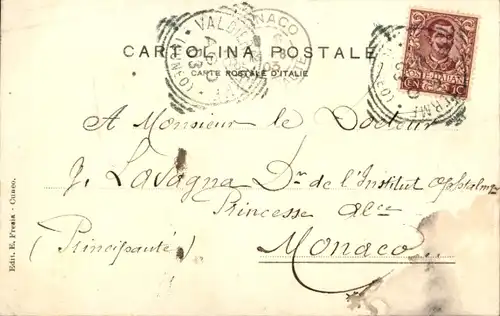 CARTOLINA POSTALE
CARTE POSTALE D'ITALIE
VALDIERI
MONACO
(CUNEO)
POSTE ITALIANE
CEN. 10
A Monsieur le Docteur
J. Lavagna Dr de l'Institut
Princesse Alce
(Principauté) Monaco
Edit. E. Fresia - Cuneo.